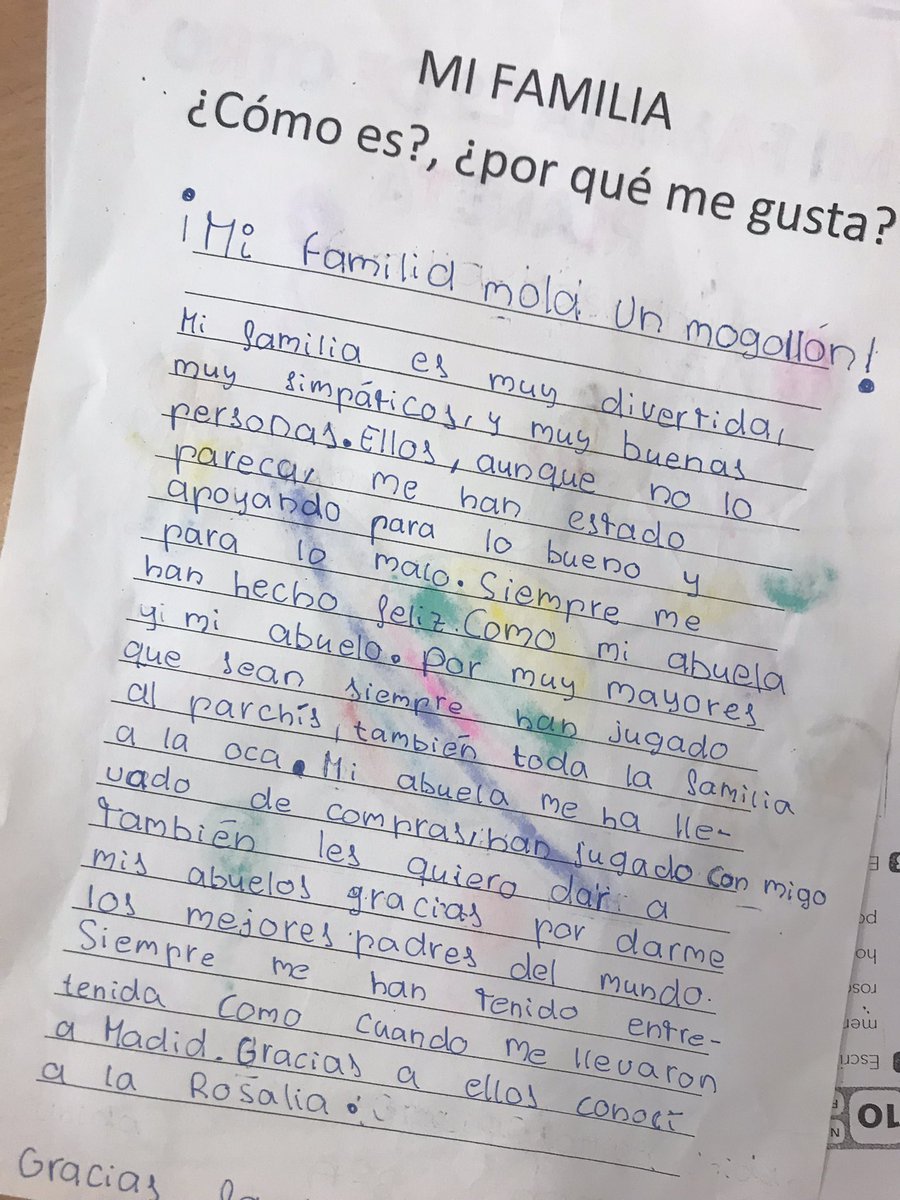 MI FAMILIA
¿Cómo es?, ¿por qué me gusta?
¡Mi familia mola un mogollón!
Mi familia es muy divertida,
muy simpáticos, y muy buenas
personas. Ellos, aunque no lo
pareca, me han estado
apoyando para lo bueno y
para lo malo. Siempre me
han hecho feliz. Como mi abuela
yi mi abuelo. Por muy mayores
que sean siempre han jugado
al parchís, también toda la familia
a la oca. Mi abuela me ha lle-
vado de compras, han jugado con migo
También les quiero dar a
mis abuelos gracias por darme
los mejores padres del mundo.
Siempre me han tenido entre-
tenida como cuando me llevaron
a Madid. Gracias a ellos conocí
a la Rosalia.
Gracias
10
Escri